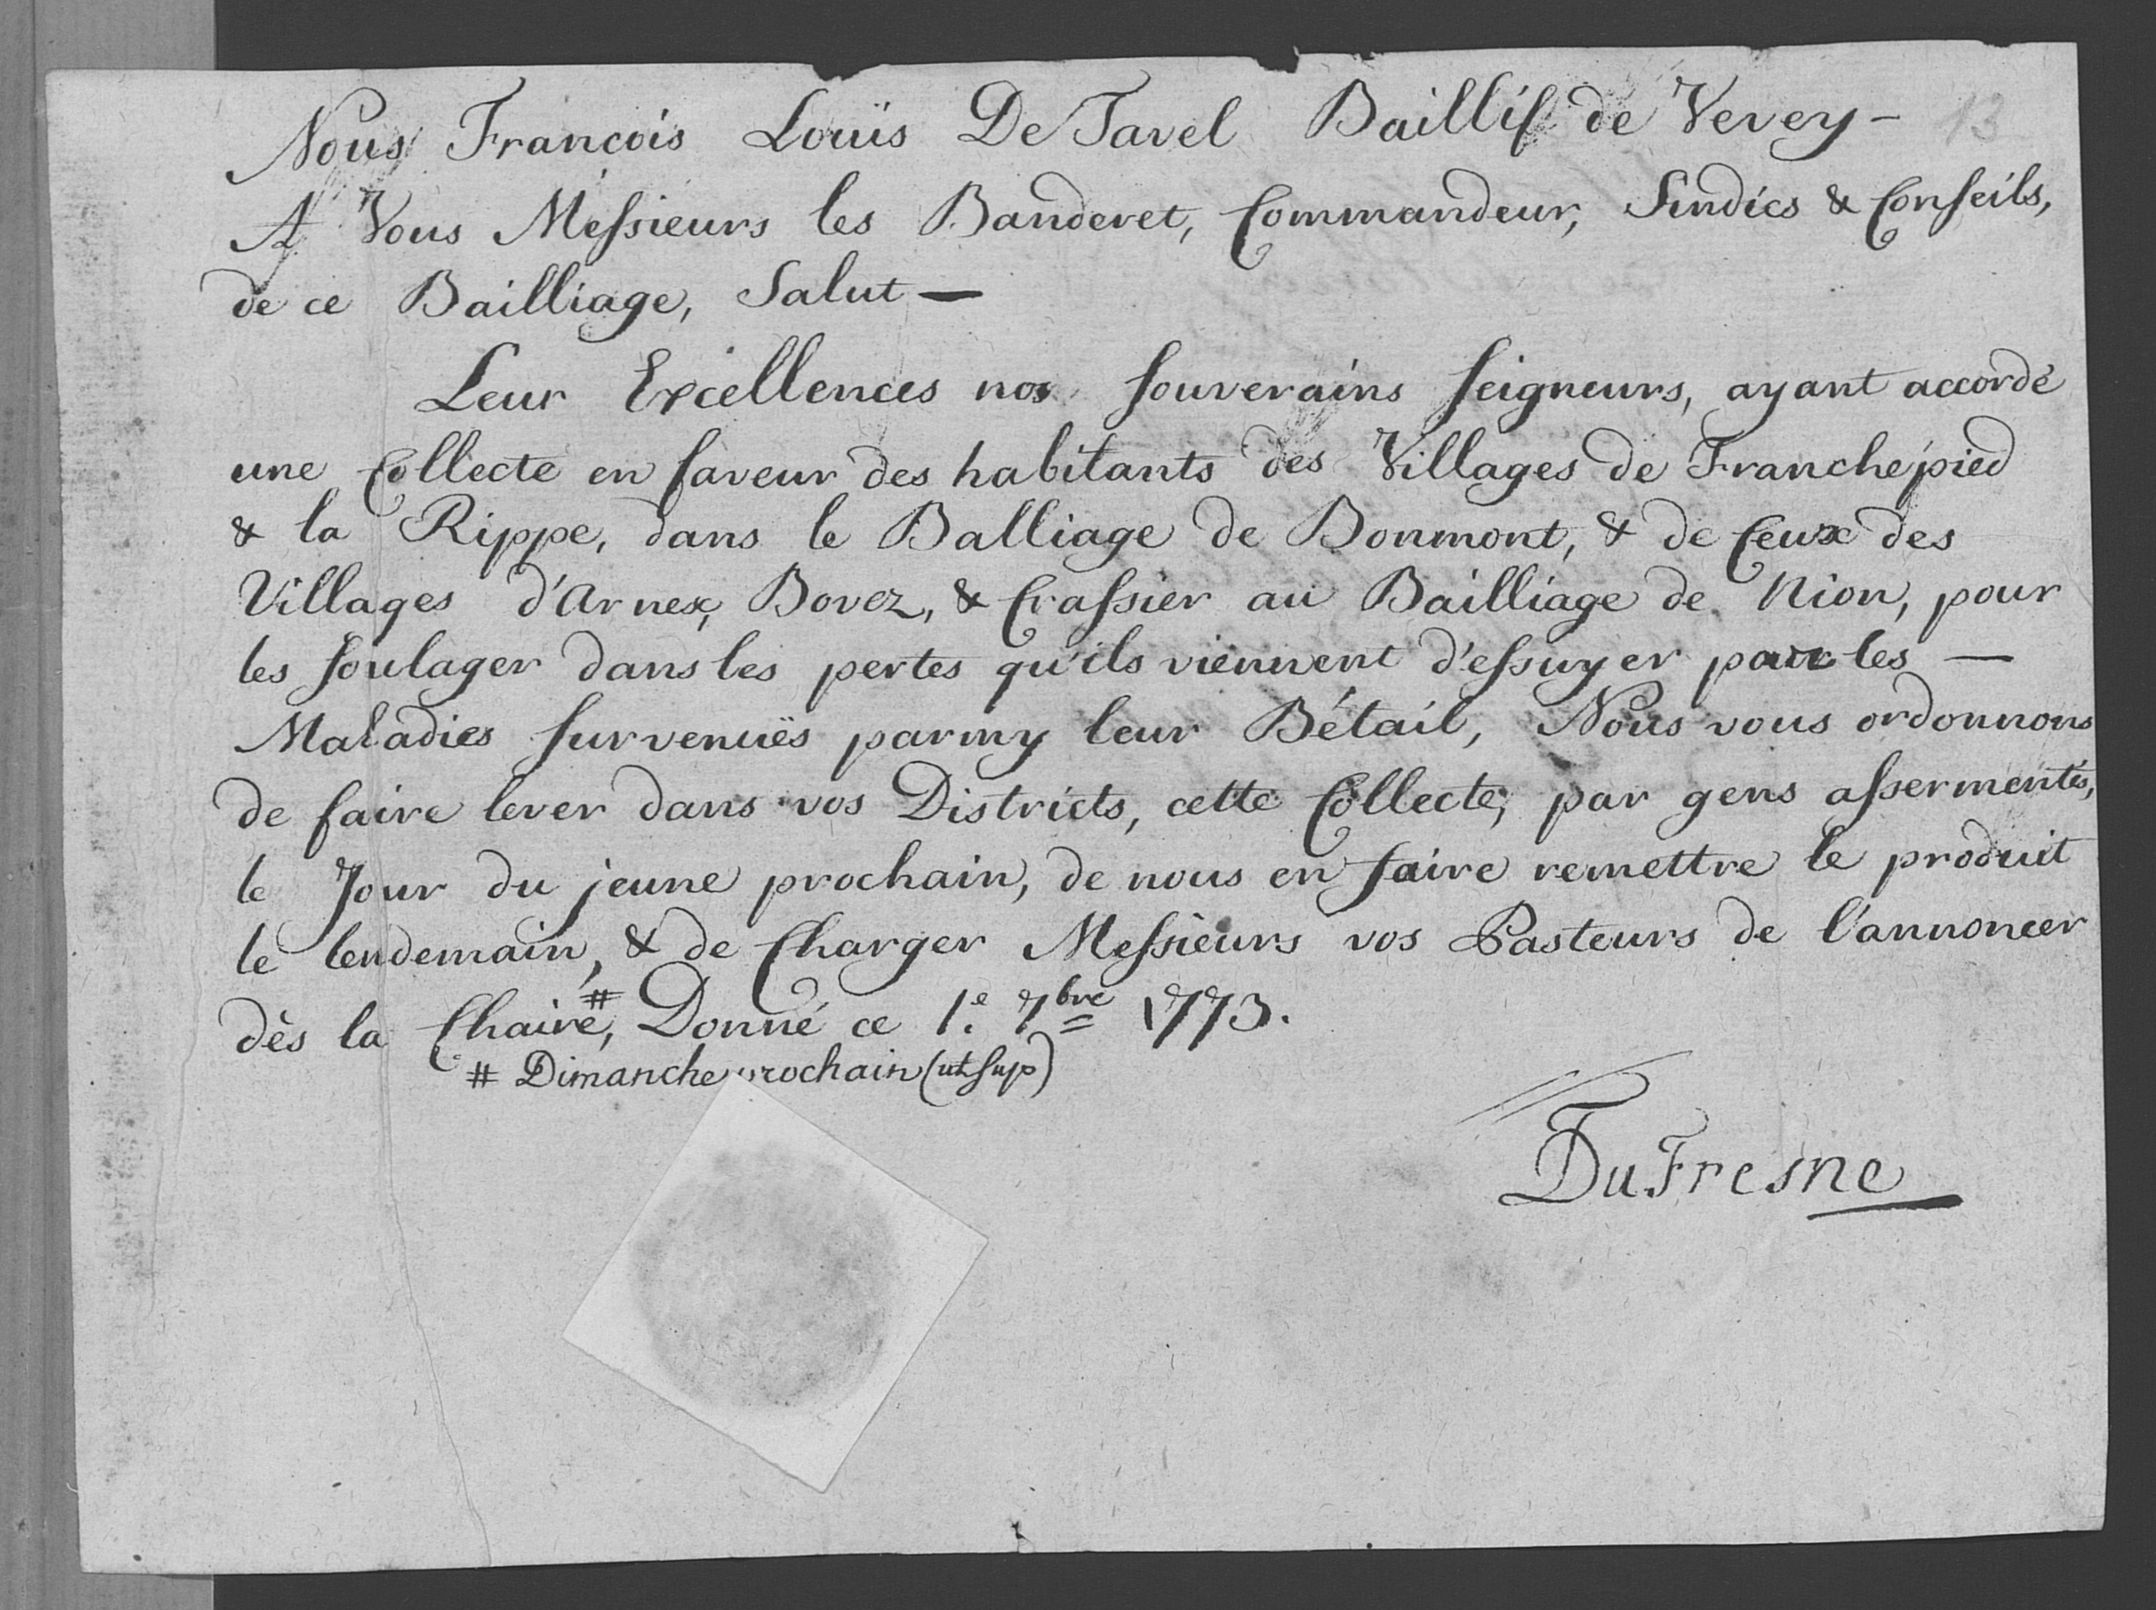 13
Nous François Louïs De Tavel Baillif de Vevey -
A Vous Messieurs les Banderet, Commandeur, Sindics & Conseils,
de ce Bailliage, Salut —
Leur Excellences nos souverains seigneurs, ayant accordé
une Collecte en faveur des habitants des Villages de Franchepied
& la Rippe, dans le Balliage de Bonmont, & de Ceux des
Villages d'Arnex, Bovez, & Crassier au Bailliage de Nion, pour
les soulager dans les pertes qu'ils viennent d'essuyer par les —
Maladies survenuës parmy leur Bétail, Nous vous ordonnons
de faire lever dans vos Districts, cette Collecte, par gens assermentés,
le Jour du jeune prochain, de nous en faire remettre le produit
le lendemain, & de Charger Messieurs vos Pasteurs de l'annoncer
dès la Chaire, # Donné ce 1.e 7bre 1773.
# Dimanche prochain (ut sup)
DuFresne